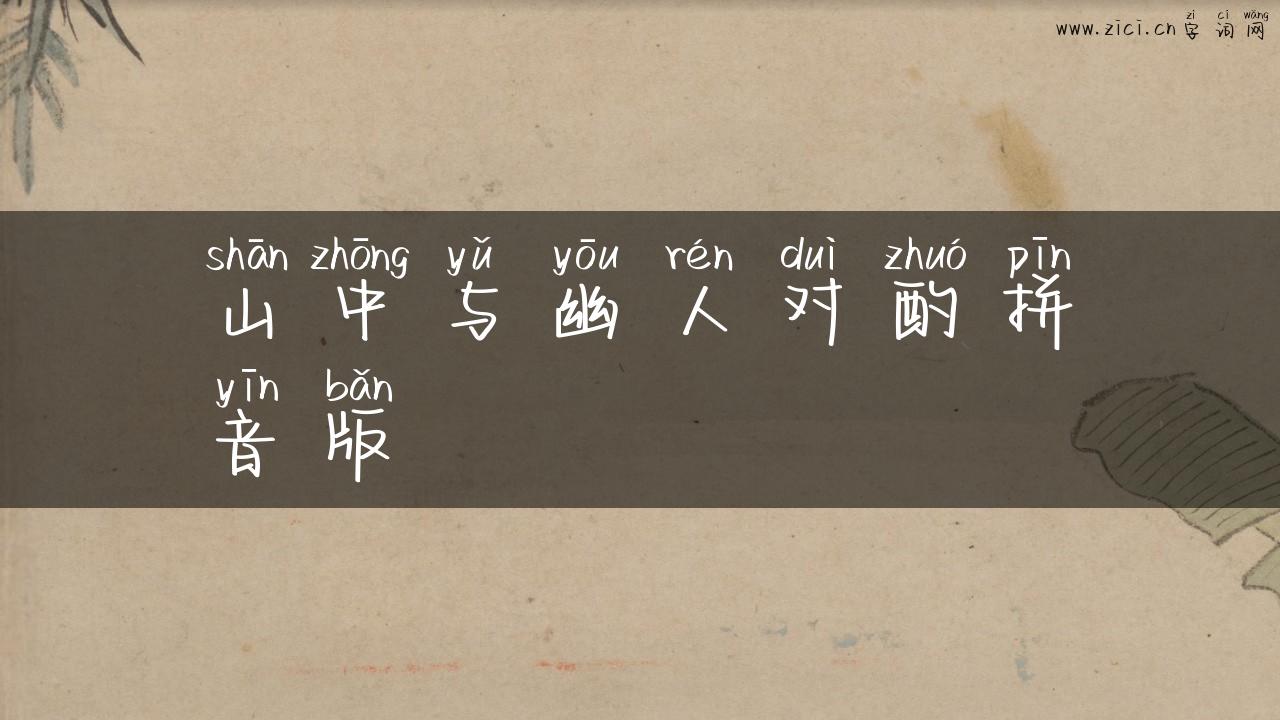 zì cí wǎng
www.zici.cn 字词网
shān zhōng yǔ yōu rén duì zhuó pīn
山中与幽人对酌拼
yīn bǎn
音版